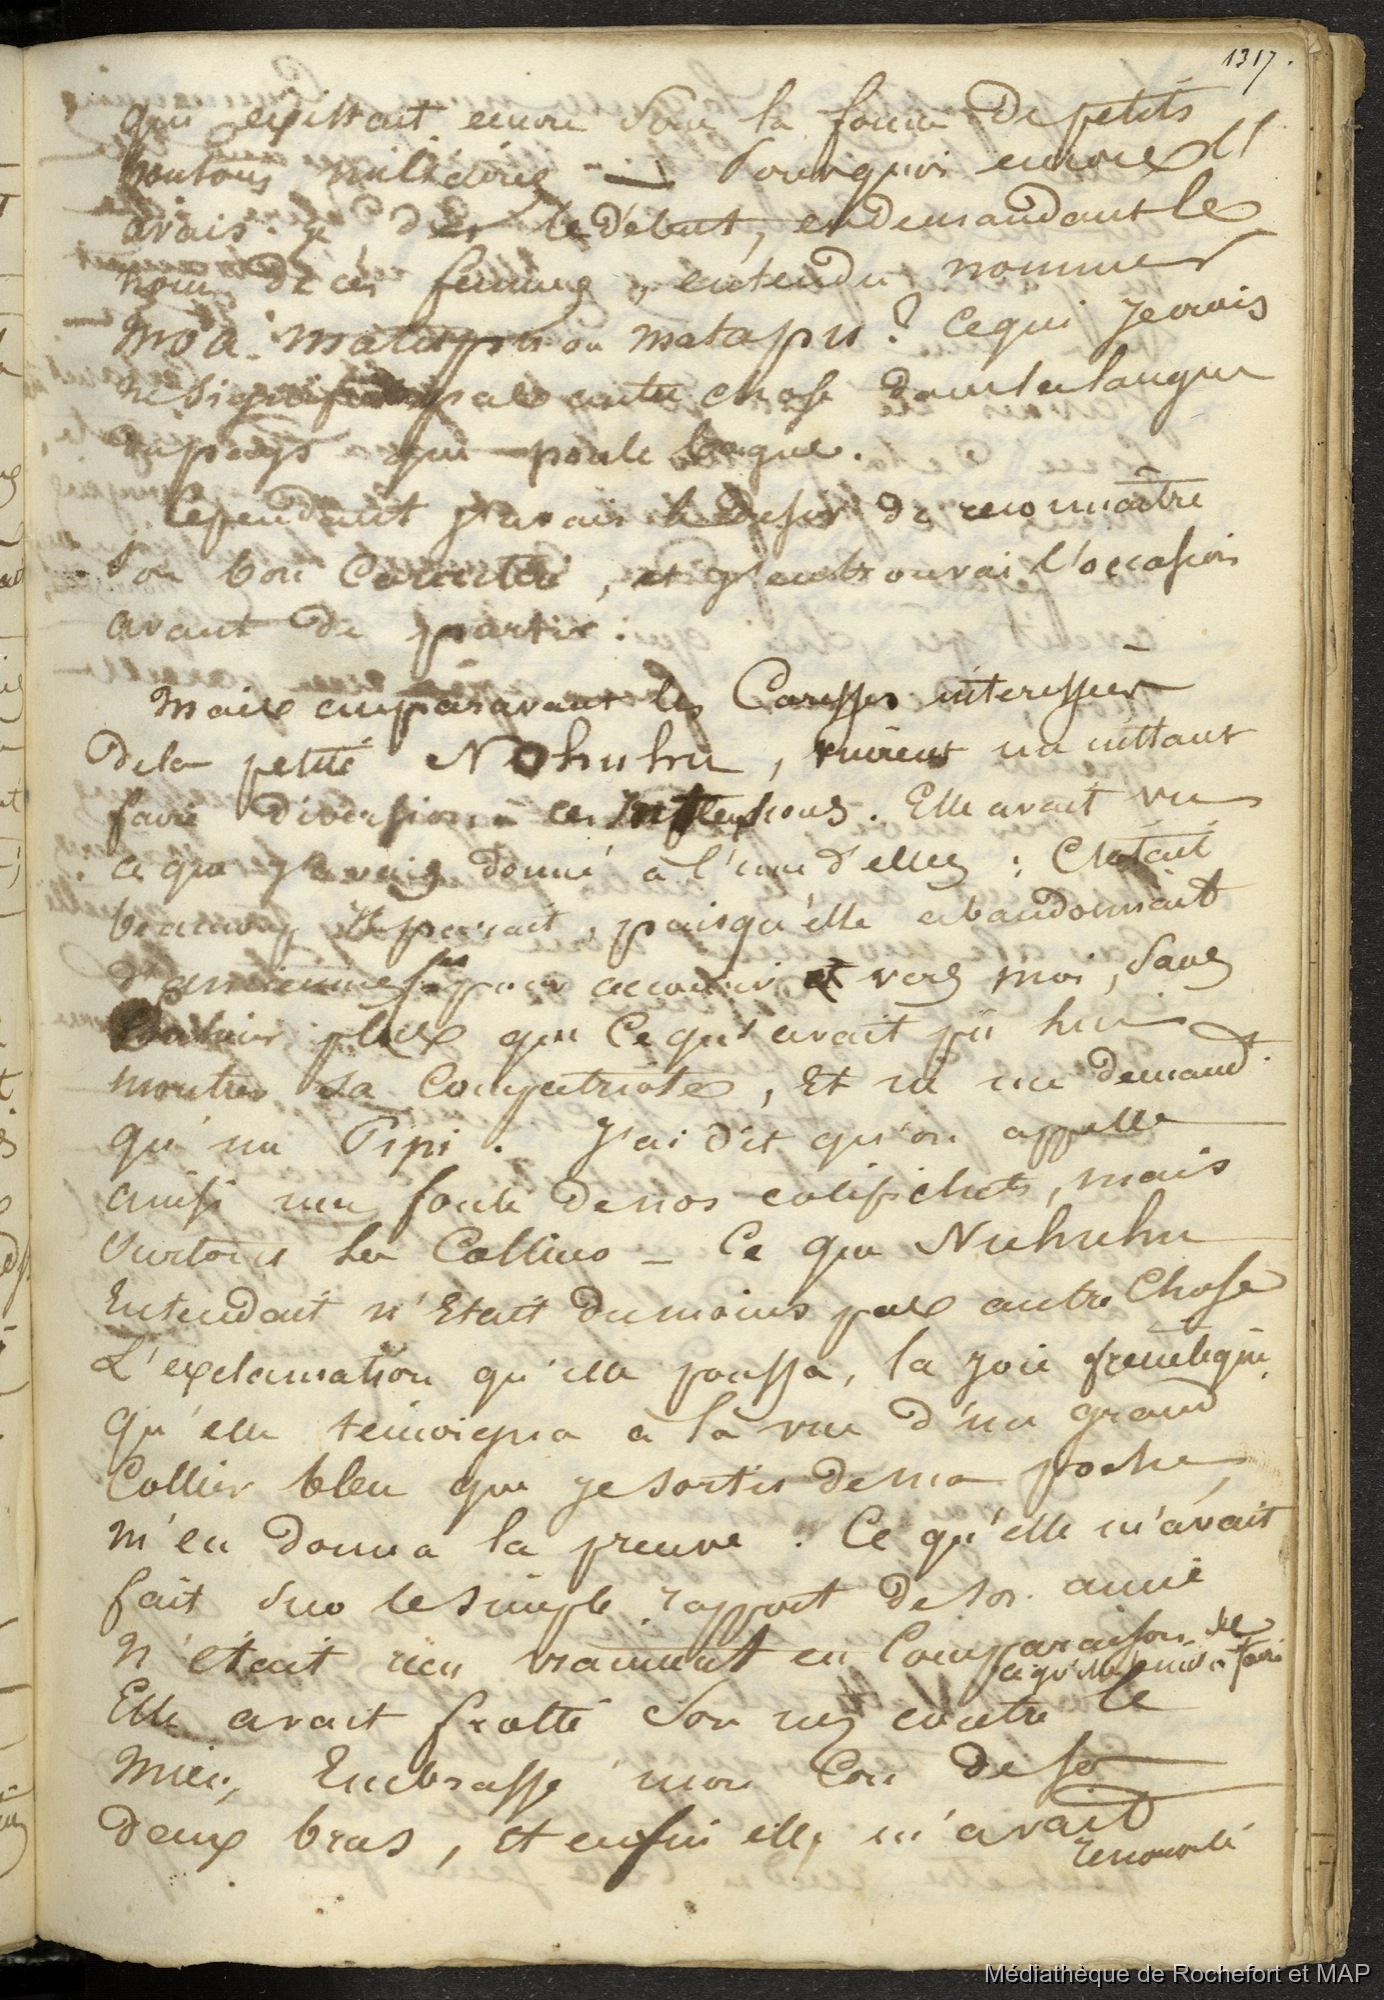 1317.
qui existait encore sous la forme de petits
boutons miliaires — Pourquoi encore
avais-je dès le début, en demandant le
nom de ces femmes, entendu nommer
Moa matapu ou matapu ? Ce qui je crois
ne signifiait pas autre chose dans la langue
du pays que poule
Cependant j'avais le desir de reconnaitre
son bon Caractère, et j'en trouvai l'occasion
avant de partir :
Mais auparavant les Caresses interessées
de la petite Nohuhu, vinrent un instant
faire diversion à ces intentions. Elle avait vu
ce que j'avais donné à l'une d'elles ; C'etait
beaucoup il parait, puisqu'elle abandonnait
pour accourir vers moi, sans
plus que ce qu'avait pû lui
montrer sa Compatriote, Et ne me demand
qu'un Pipi. J'ai dit qu'on appelle
ainsi une foule de nos colifichets, mais
surtout les Colliers — Ce que Nuhuhu
Entendait n'Etait du moins pas autre Chose
L'exclamation qu'elle poussa, la joie frenetique
qu'elle temoigna à la vue d'un grand
Collier bleu que je sortis de ma poche,
m'en donna la preuve. Ce qu'elle m'avait
fait sur le simple rapport de son amie
n'était rien vraiment en Comparaison de
ce qu'elle faire
Elle avait frotté son nez contre le
mien, Embrassé mon Cou de ses
deux bras, Et enfin elle m'avait
renouvelé
Médiathèque de Rochefort et MAP